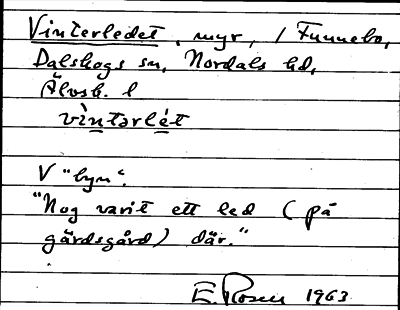 Vinterledet, myr, / Funnebo,
Dalskogs sn, Nordals hd,
Älvsb. l
vìntərlét
V "byn".
"Nog varit ett led (på
gärdsgård) där."
E. Rosen 1963